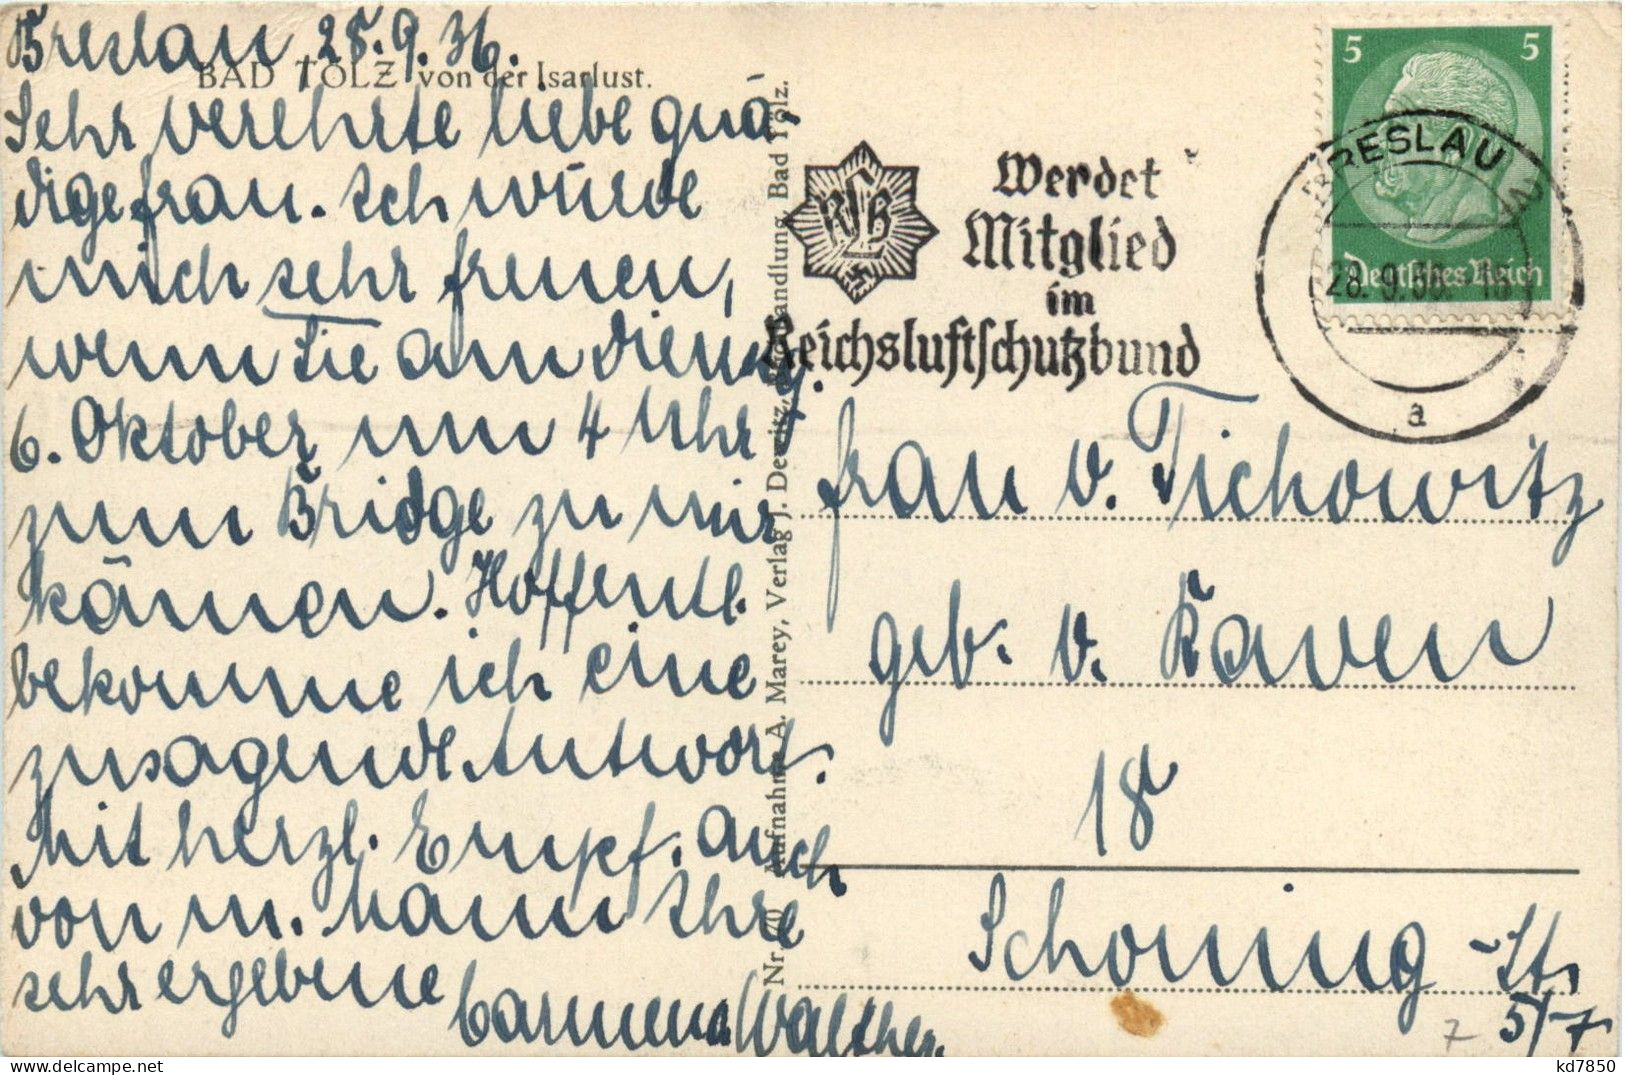 Breslau 28.9.36.
BAD TÖLZ von der Isarlust.
Sehr verehrte liebe gnä-
dige Frau. Ich würde
mich sehr freuen,
wenn Sie am Dienstg.
6. Oktober um 4 Uhr
zum Bridge zu mir
kämen. Hoffentl.
bekomme ich eine
zusagende Antwort.
Mit herzl. Empf. auch
von m. Mann Ihre
sehr ergebene Carmen Walther.
Nr. 70 Aufnahme A. Marey, Verlag J. Dewitz, Buchhandlung, Bad Tölz.
RLB
Werdet
Mitglied
im
Reichsluftschutzbund
5 5
Deutsches Reich
BRESLAU 2
28.9.36.-15
a
Frau v. Tichowitz
geb. v. Raven
18
Schoning-St.
5/7
7
kd7850